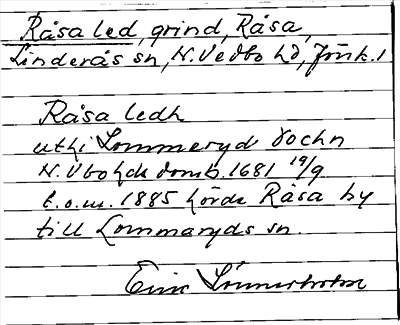 Råsa led, grind, Råsa,
Linderås sn, N. Vedbo hd, Jönk. l
Råsa ledh
uthi Lommeryd Sochn
N. Vbo hds domb. 1681 19/9
t.o.m. 1885 hörde Råsa by
till Lommaryds sn.
Einar